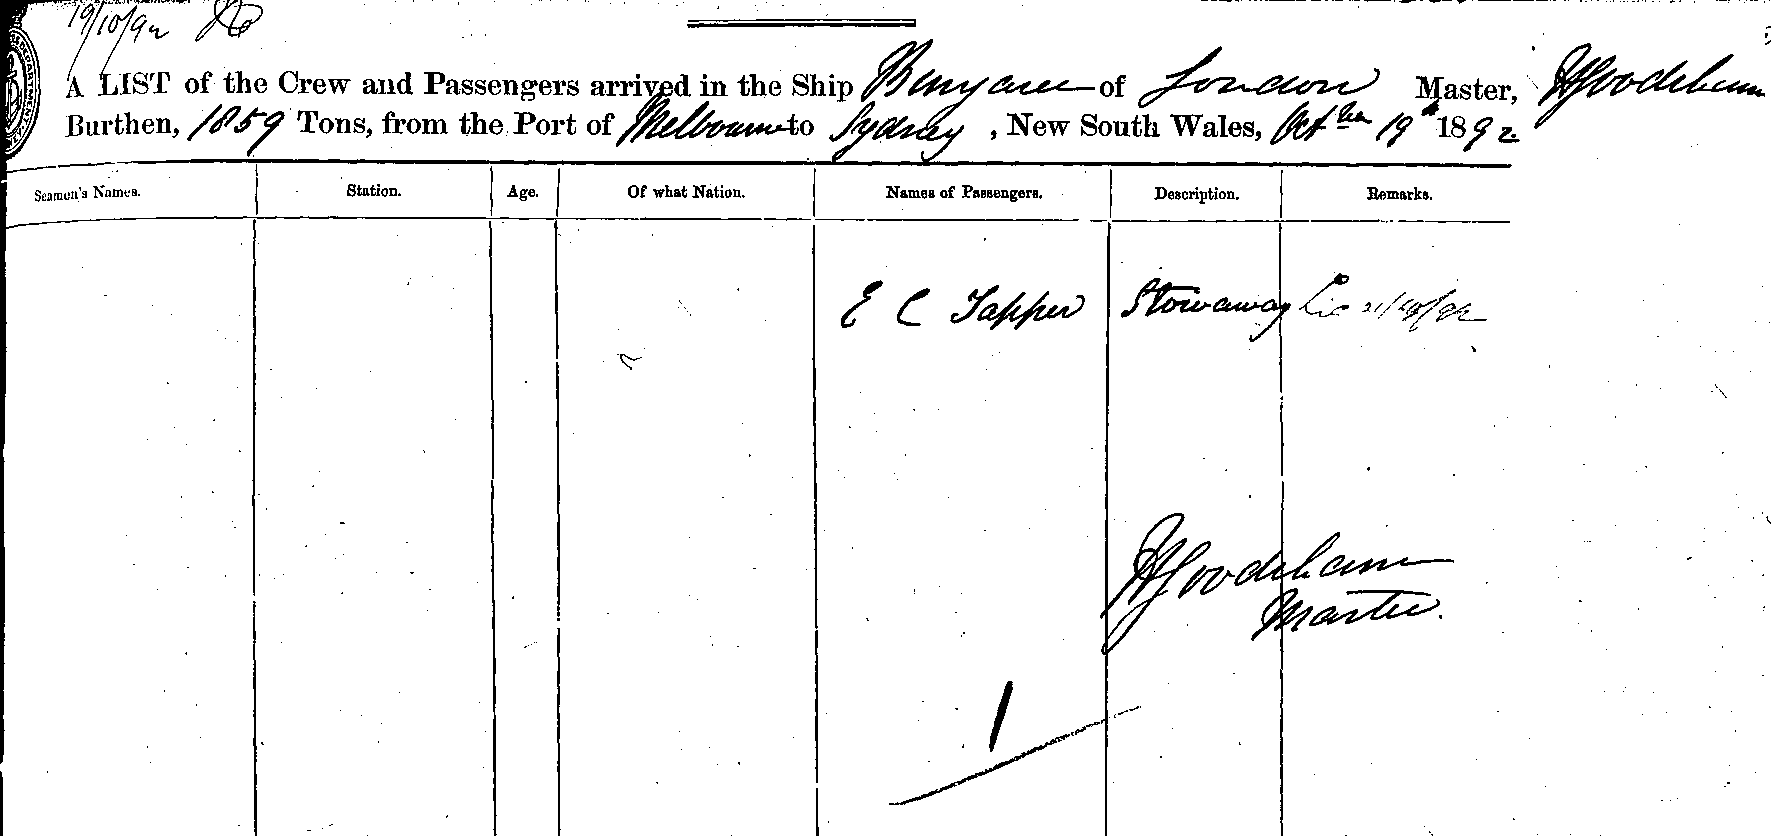 19/10/92
A LIST of the Crew and Passengers arrived in the Ship Bunyan of London Master, Goodeham
Burthen, 1859 Tons, from the Port of Melbourne to Sydney, New South Wales, Octber 19th 1892
Seamen's Names. Station. Age. Of what Nation. Names of Passengers. Description. Remarks.
E C Tapper Stowaway 21/10/92
Master.
1